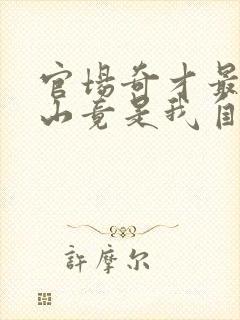 官場奇才最
山竟是我自
許摩尔